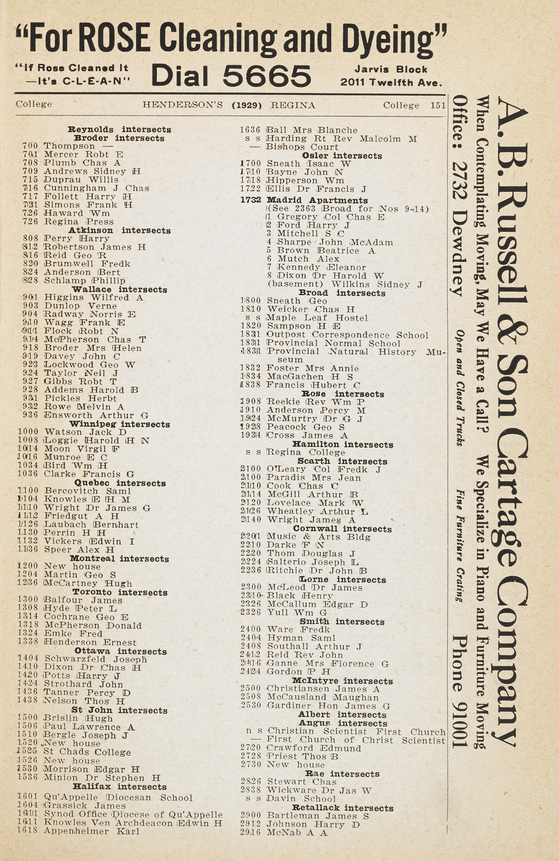 "For ROSE Cleaning and Dyeing"
"If Rose Cleaned It
—It's C-L-E-A-N"
Dial 5665
Jarvis Block
2011 Twelfth Ave.
College
HENDERSON'S (1929) REGINA
College 151
Reynolds intersects
Broder intersects
700 Thompson —
701 Mercer Robt E
708 Plumb Chas A
709 Andrews Sidney H
715 Duprau Willis
716 Cunningham J Chas
717 Follett Harry H
721 Simons Frank H
726 Haward Wm
726 Regina Press
Atkinson intersects
808 Perry Harry
812 Robertson James H
816 Reid Geo R
820 Brumwell Fredk
824 Anderson Bert
828 Schlamp Phillip
Wallace intersects
901 Higgins Wilfred A
903 Dunlop Verne
904 Radway Norris E
910 Wagg Frank E
Flock Robt N
914 McPherson Chas T
918 Broder Mrs Helen
919 Davey John C
923 Lockwood Geo W
924 Taylor Neil J
927 Gibbs Robt T
928 Addems Harold B
931 Pickles Herbt
932 Rowe Melvin A
936 Einsworth Arthur G
Winnipeg intersects
1000 Watson Jack D
1008 Loggie Harold H N
1014 Moon Virgil F
1016 Munroe E C
1034 Bird Wm H
1036 Clarke Francis G
Quebec intersects
1100 Bercovitch Saml
1104 Knowles E H M
1110 Wright Dr James G
1112 Friedgut A H
1126 Laubach Bernhart
1130 Perrin H H
1132 Vickers Edwin I
1136 Speer Alex H
Montreal intersects
1200 New house
1204 Martin Geo S
1236 McCartney Hugh
Toronto intersects
1300 Balfour James
1308 Hyde Peter L
1314 Cochrane Geo E
1318 McPherson Donald
1324 Emke Fred
1338 Henderson Ernest
Ottawa intersects
1404 Schwarzfeld Joseph
1410 Dixon Dr Chas H
1420 Potts Harry J
1424 Strothard John
1436 Tanner Percy D
1438 Nelson Thos H
St John intersects
1500 Brislin Hugh
1506 Paul Lawrence A
1510 Bergie Joseph J
1520 New house
1525 St Chads College
1526 New house
1530 Morrison Edgar H
1536 Minion Dr Stephen H
Halifax intersects
1601 Qu'Appelle Diocesan School
1604 Grassick James
Synod Office Diocese of Qu'Appelle
1611 Knowles Ven Archdeacon Edwin H
1618 Appenheimer Karl
1636 Ball Mrs Blanche
s s Harding Rt Rev Malcolm M
— Bishops Court
Osler intersects
1700 Sneath Isaac W
1710 Bayne John N
1718 Hipperson Wm
1722 Ellis Dr Francis J
1732 Madrid Apartments
(See 2363 Broad for Nos 9-14)
1 Gregory Col Chas E
2 Ford Harry J
3 Mitchell S C
4 Sharpe John McAdam
5 Brown Beatrice A
6 Mutch Alex
7 Kennedy Eleanor
8 Dixon Dr Harold W
(basement) Wilkins Sidney J
Broad intersects
1800 Sneath Geo
1810 Weicker Chas H
s s Maple Leaf Hostel
1820 Sampson H E
1831 Outpost Correspondence School
1831 Provincial Normal School
1831 Provincial Natural History Mu-
seum
1832 Foster Mrs Annie
1834 MacGachen H S
1838 Francis Hubert C
Rose intersects
1908 Reekie Rev Wm P
1910 Anderson Percy M
1924 McMurtry Dr G J
1928 Peacock Geo S
1934 Cross James A
Hamilton intersects
s s Regina College
Scarth intersects
2100 O'Leary Col Fredk J
2100 Paradis Mrs Jean
2110 Cook Chas C
2114 McGill Arthur B
2120 Lovelace Mark W
2126 Wheatley Arthur L
2140 Wright James A
Cornwall intersects
2201 Music & Arts Bldg
2210 Darke F N
2220 Thom Douglas J
2224 Salterio Joseph L
2236 Ritchie Dr John B
Lorne intersects
2300 McLeod Dr James
2310 Black Henry
2326 McCallum Edgar D
2326 Yuill Wm G
Smith intersects
2400 Ware Fredk
2404 Hyman Saml
2408 Southall Arthur J
2412 Reid Rev John
2416 Ganne Mrs Florence G
2424 Gordon P H
McIntyre intersects
2500 Christiansen James A
2508 McCausland Maughan
2530 Gardiner Hon James G
Albert intersects
Angus intersects
n s Christian Scientist First Church
— First Church of Christ Scientist
2720 Crawford Edmund
2728 Priest Thos B
2730 New house
Rae intersects
2826 Stewart Chas
2838 Wickware Dr Jas W
s s Davin School
Retallack intersects
2900 Bartleman James S
2912 Johnson Harry D
2916 McNab A A
A. B. Russell & Son Cartage Company
When Contemplating Moving, May We Have a Call? We Specialize in Piano and Furniture Moving
Open and Closed Trucks Fine Furniture Crating
Office: 2732 Dewdney Phone 91001